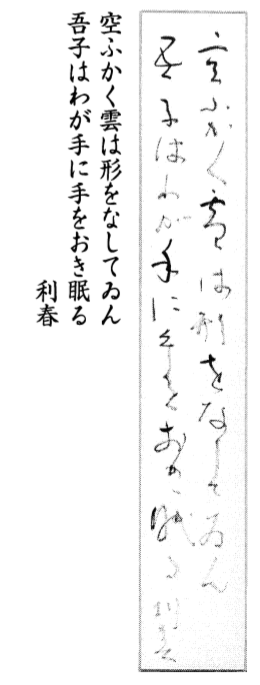 空ふかく雲は形をなしてゐん
吾子はわが手に手をおき眠る 利春
空ふかく雲は形をなしてゐん
吾子はわが手に手をおき眠る
利春